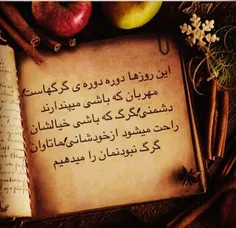 این روزها دوره دوره ی گرگهاست
مهربان که باشی میپندارند
دشمنی!گرگ که باشی خیالشان
راحت میشود ازخودشانی!ماتاوان
گرگ نبودنمان را میدهیم